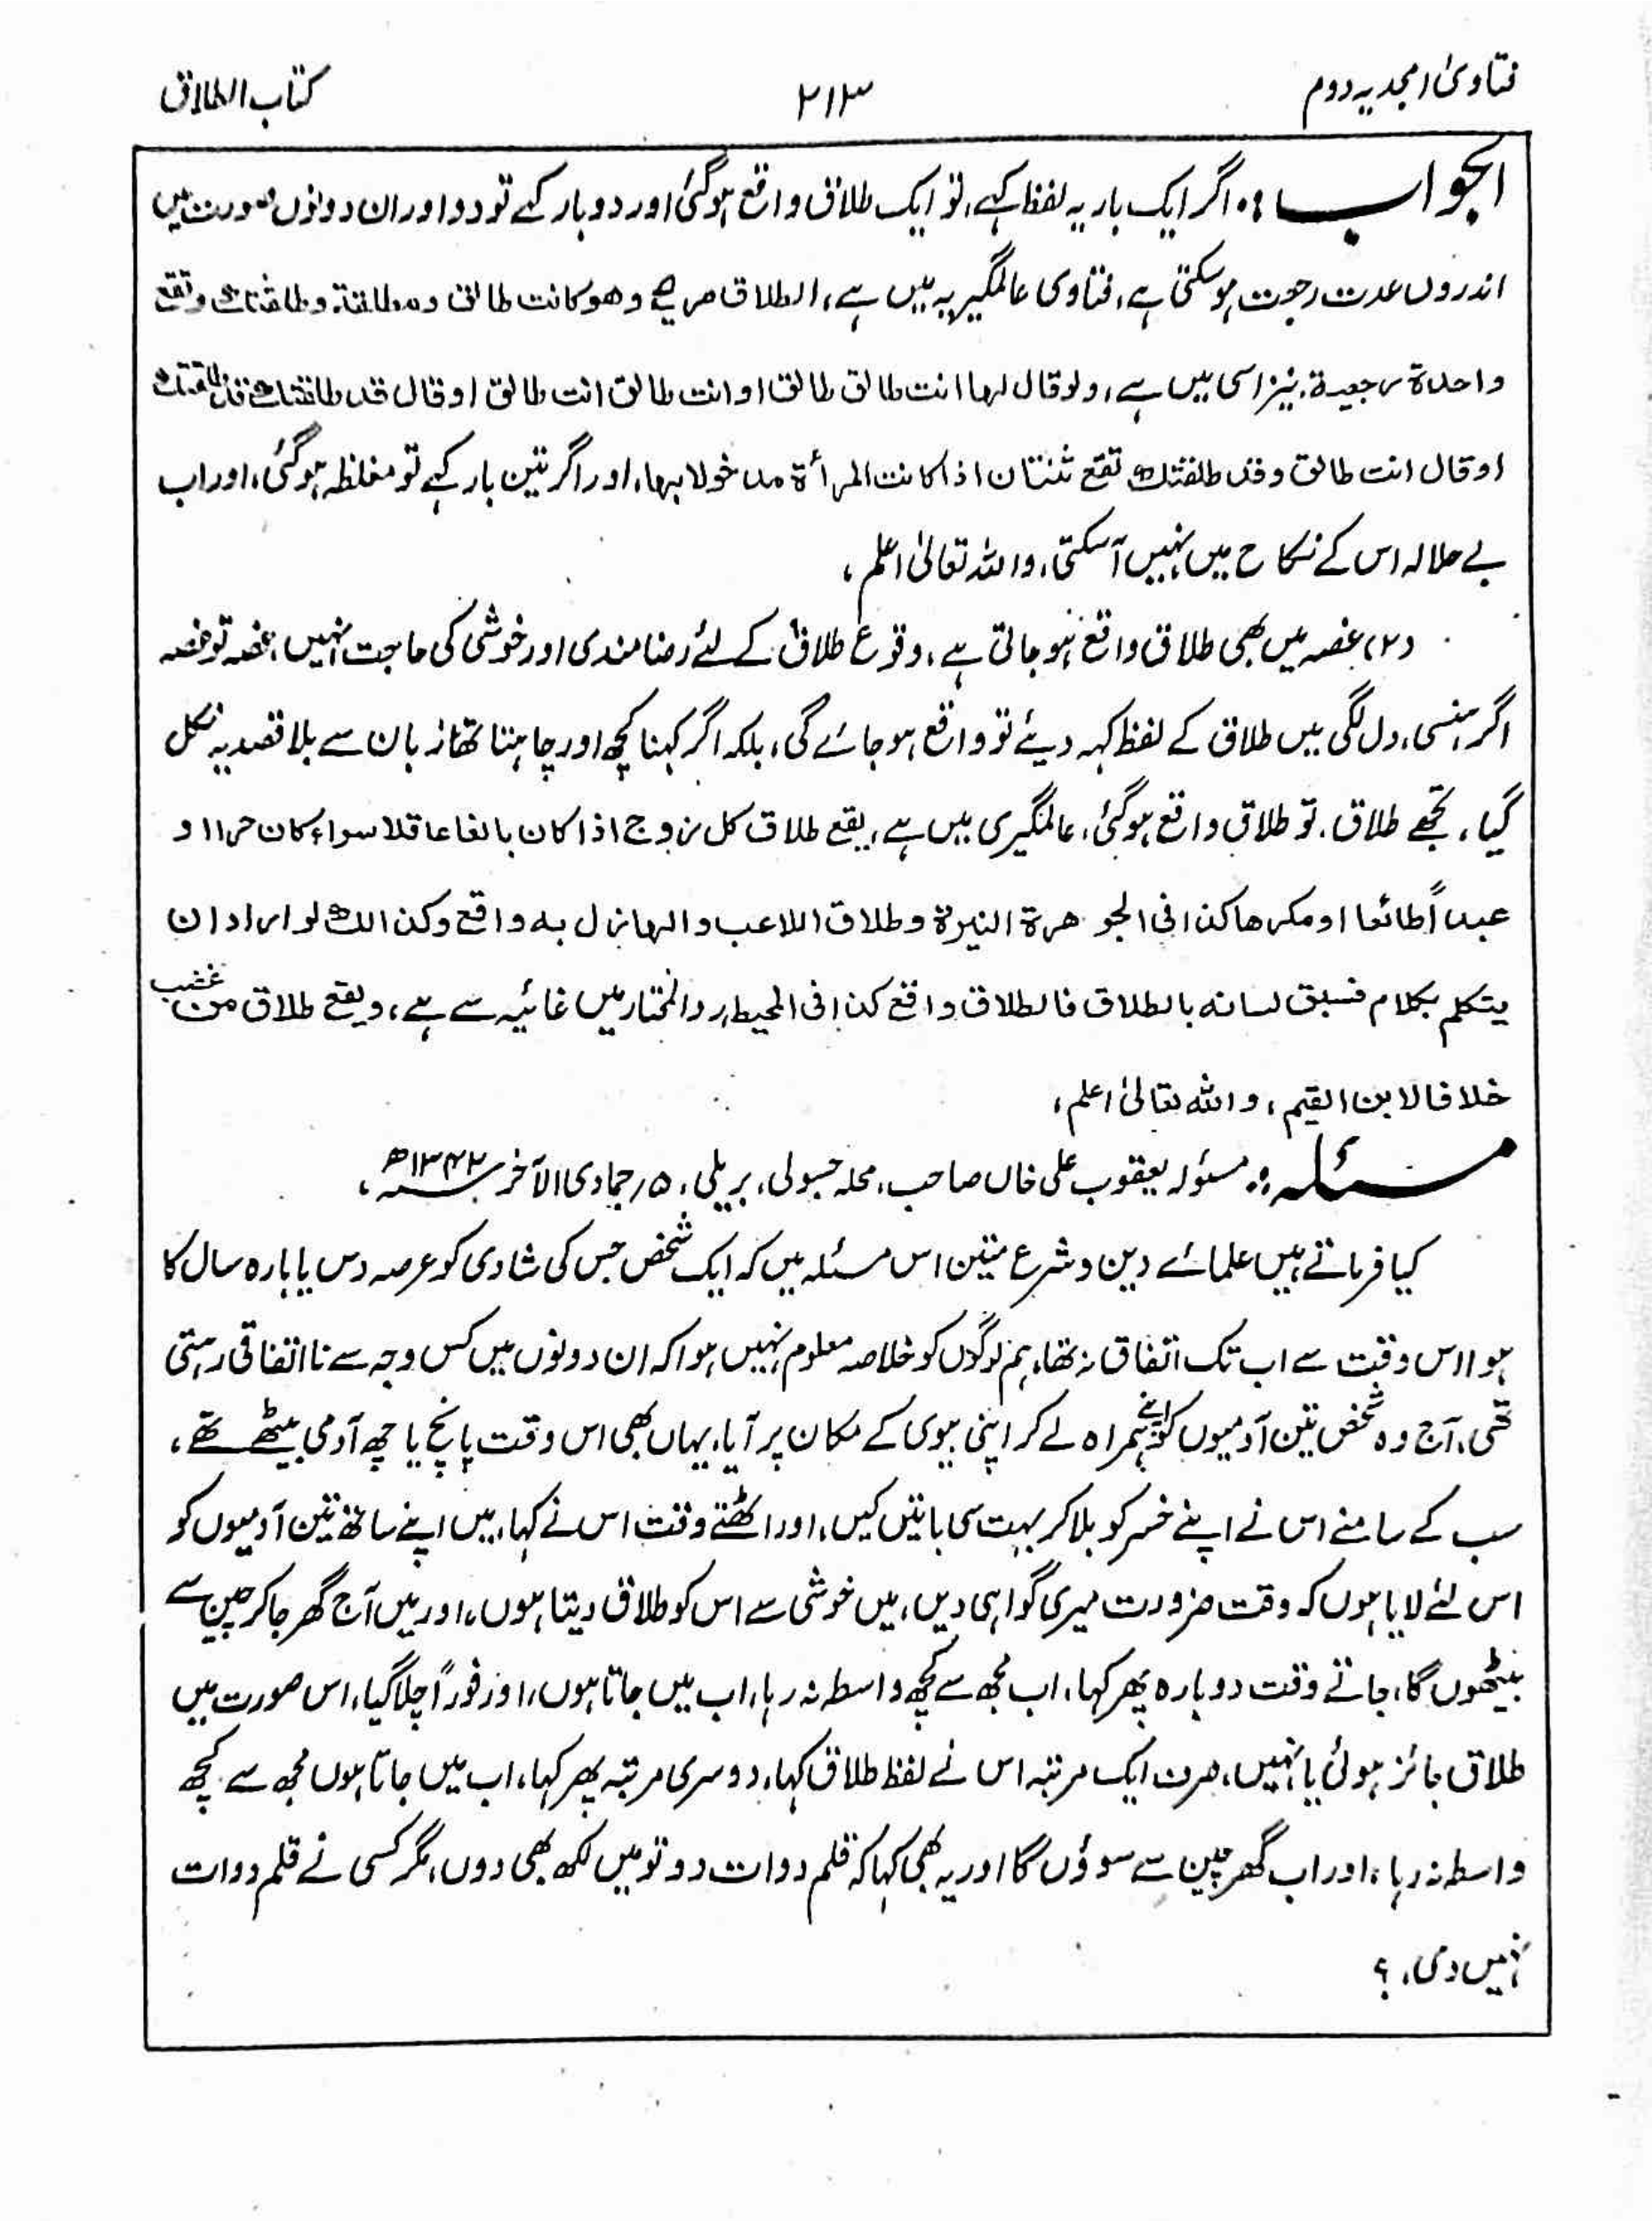 فتاویٰ امجدیہ دوم
۲۱۳
کتاب الطلاق
الجواب :۔ اگر ایک بار یہ لفظ کہے، تو ایک طلاق واقع ہوگئی اور دو بار کہے تو دو اور ان دونوں صورت میں
اندرون عدت رجعت ہوسکتی ہے، فتاوی عالمگیریہ میں ہے، الطلاق صریح وھو کانت طالق ومطلقة وطلقتك وتقع
واحدة رجعیة. نیز اسی میں ہے، ولو قال لہا انت طالق طالق او انت طالق انت طالق او قال قد طلقتك قد طلقتك
او قال انت طالق وقد طلقتك تقع ثنتان اذا کانت المرأة مدخولا بہا، اور اگر تین بار کہے تو مغلظہ ہوگئی، اور اب
بے حلالہ اس کے نکاح میں نہیں آسکتی، واللہ تعالیٰ اعلم،
(۲) غصہ میں بھی طلاق واقع ہو جاتی ہے، وقوع طلاق کے لئے رضامندی اور خوشی کی حاجت نہیں، غصہ تو غصہ
اگر ہنسی، دل لگی میں طلاق کے لفظ کہہ دیئے تو واقع ہو جائے گی، بلکہ اگر کہنا کچھ اور چاہتا تھا زبان سے بلا قصد یہ نکل
گیا، تجھے طلاق، تو طلاق واقع ہوگئی، عالمگیری میں ہے، یقع طلاق کل زوج اذا کان بالغا عاقلا سواء کان حرا او
عبداً طائعا او مکرھا کذا فی الجوھرة النیرة وطلاق اللاعب والہازل بہ واقع وکذالك لو اراد ان
یتکلم بکلام فسبق لسانہ بالطلاق فالطلاق واقع کذا فی المحیط، ردالمختار میں غائیہ سے ہے، ویقع طلاق من غضب
خلافا لابن القیم، واللہ تعالیٰ اعلم،
مسئلہ :۔ مسئولہ یعقوب علی خاں صاحب، محلہ جسولی، بریلی، ۵؍ جمادی الآخر ۱۳۴۲ھ،
کیا فرماتے ہیں علمائے دین و شرع متین اس مسئلہ میں کہ ایک شخص جس کی شادی کو عرصہ دس یا بارہ سال کا
ہوا اس وقت سے اب تک اتفاق نہ تھا، ہم لوگوں کو خلاصہ معلوم نہیں ہوا کہ ان دونوں میں کس وجہ سے نااتفاقی رہتی
تھی، آج وہ شخص تین آدمیوں کو اپنے ہمراہ لے کر اپنی بیوی کے مکان پر آیا، یہاں بھی اس وقت پانچ یا چھ آدمی بیٹھے تھے،
سب کے سامنے اس نے اپنے خسر کو بلا کر بہت سی باتیں کیں، اور اٹھتے وقت اس نے کہا، میں اپنے ساتھ تین آدمیوں کو
اس لئے لایا ہوں کہ وقت ضرورت میری گواہی دیں، میں خوشی سے اس کو طلاق دیتا ہوں، اور میں آج گھر جا کر چین سے
بیٹھوں گا، جاتے وقت دوبارہ پھر کہا، اب مجھ سے کچھ واسطہ نہ رہا، اب میں جاتا ہوں، اور فوراً چلا گیا، اس صورت میں
طلاق جائز ہوئی یا نہیں، صرف ایک مرتبہ اس نے لفظ طلاق کہا، دوسری مرتبہ پھر کہا، اب میں جاتا ہوں مجھ سے کچھ
واسطہ نہ رہا، اور اب گھر چین سے سوؤں گا اور یہ بھی کہا کہ قلم دوات دو تو میں لکھ بھی دوں، مگر کسی نے قلم دوات
نہیں دی، ؟